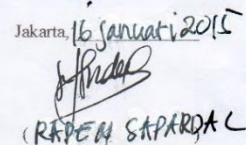 Jakarta, 16 januari 2015
(RADEN SAPARDAL